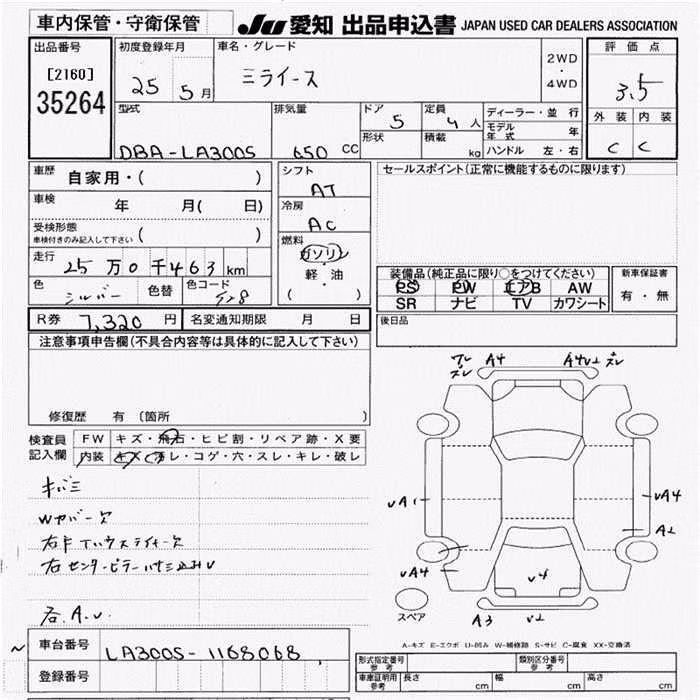 車内保管・守衛保管
JU 愛知 出品申込書 JAPAN USED CAR DEALERS ASSOCIATION
出品番号 初度登録年月 車名・グレード 2WD・4WD 評価点
[2160]
35264
25 5月 ミライース 3.5
外装 内装
C C
型式 排気量 ドア 5 定員 4人 ディーラー・並行
形状 積載 kg モデル年式 年
DBA-LA300S 650 CC ハンドル 左・右
車歴 自家用・( )
シフト AT
セールスポイント(正常に機能するものに限ります)
車検 年 月( 日)
冷房 AC
受検形態 ( )
車検付きのみ記入して下さい
燃料 ガソリン
軽・油
( )
走行 25万0千463km
色 シルバー 色替 色コード
装備品(純正品に限り○をつけてください)
PS PW エアB AW
SR ナビ TV カワシート
新車保証書
有・無
R券 7,320円 名変通知期限 月 日
後日品
注意事項申告欄(不具合内容等は具体的に記入して下さい)
修復歴 有 〔箇所 〕
検査員記入欄
FW キズ・飛石・ヒビ割・リペア跡・X要
内装 キズ・汚レ・コゲ・穴・スレ・キレ・破レ
キバミ
Wカバー欠
右センターピラーハサミ込みU
各A.U
A4 A4U2 スレ
UA1 UA4
A2
UA4 U4
スペア A3 U2
A-キズ E-エクボ U-凹み W-補修跡 S-サビ C-腐食 XX-交換済
車台番号 LA300S-1168068
登録番号
形式指定番号 参考 類別区分番号 参考
車庫証明用 参考 長さ cm 幅 cm 高さ cm